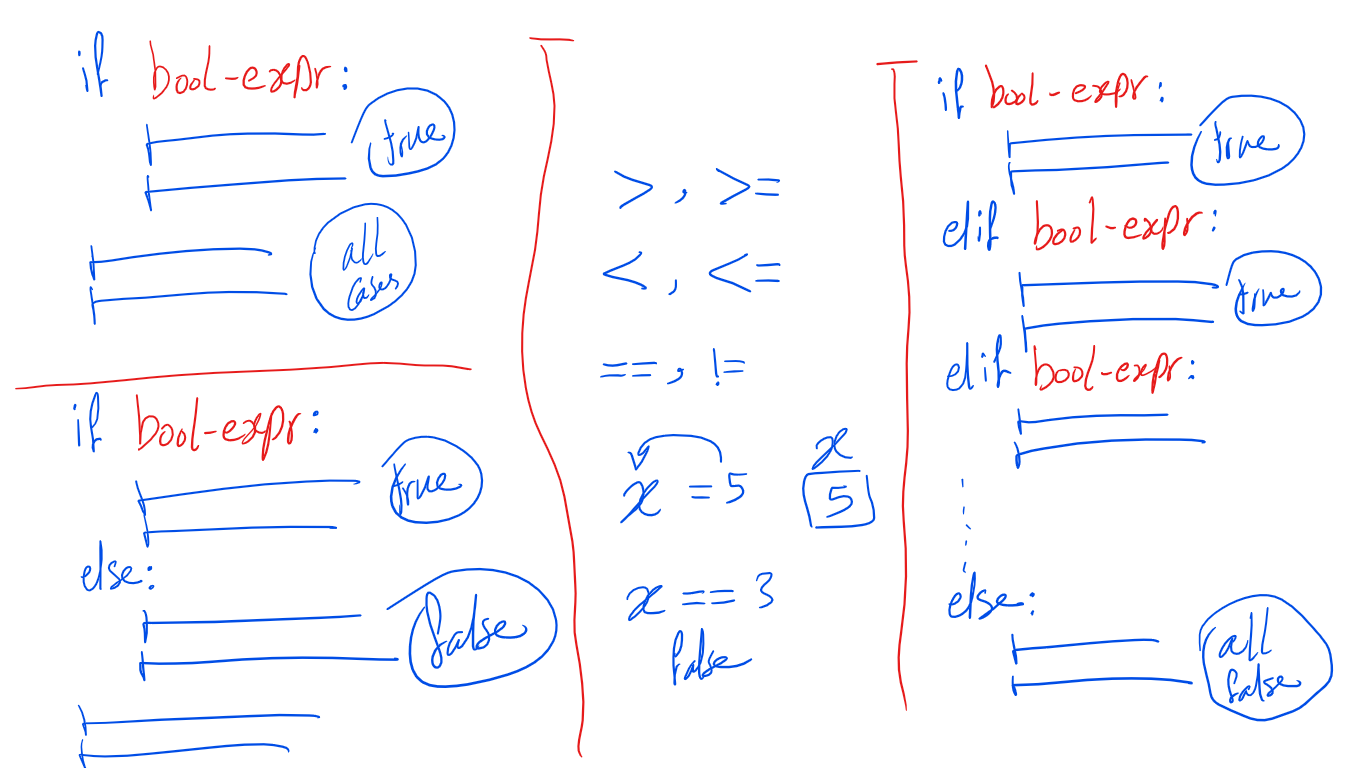 if bool-expr:
true
all
cases
if bool-expr:
true
else:
false
> , >=
< , <=
== , !=
x = 5
x
5
x == 3
false
if bool-expr:
true
elif bool-expr:
true
elif bool-expr:
else:
all
false